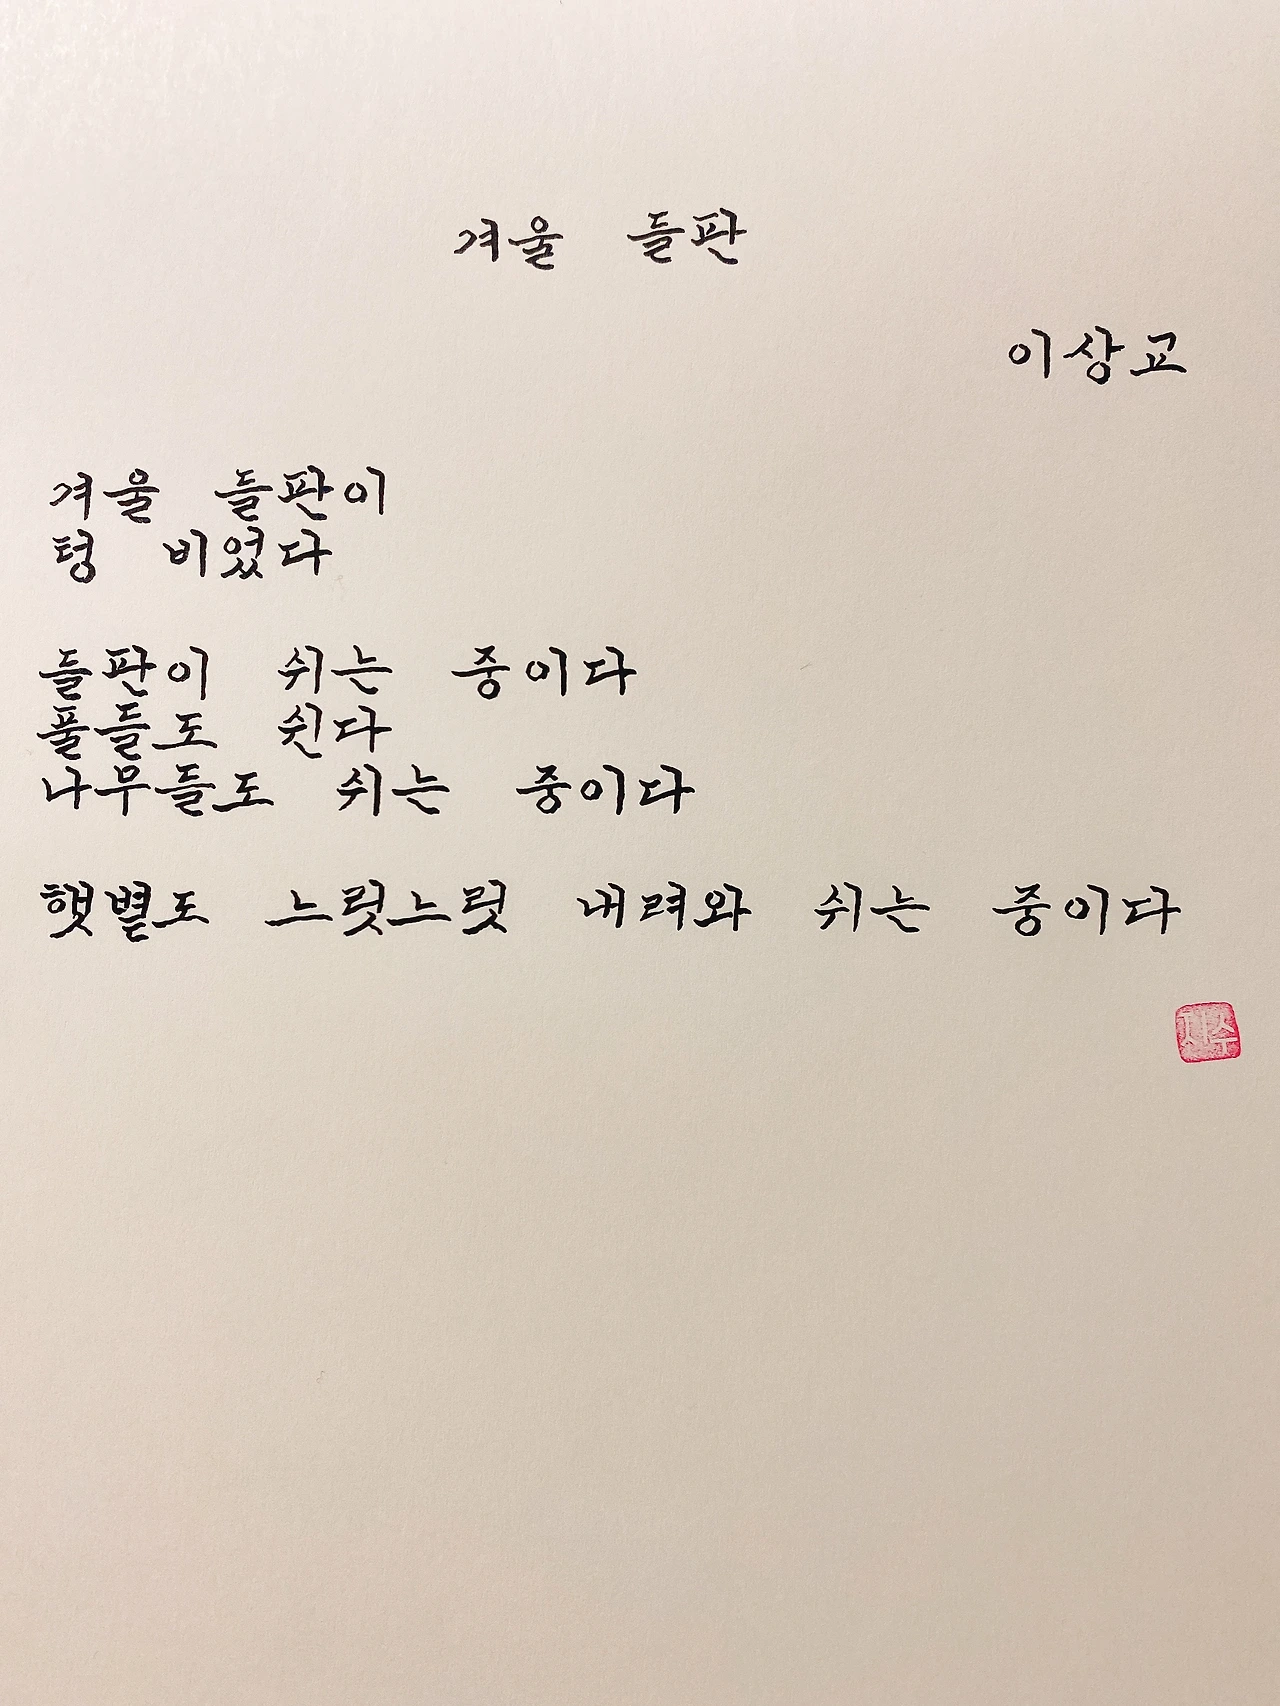 겨울 들판
이상교
겨울 들판이
텅 비었다
들판이 쉬는 중이다
풀들도 쉰다
나무들도 쉬는 중이다
햇볕도 느릿느릿 내려와 쉬는 중이다